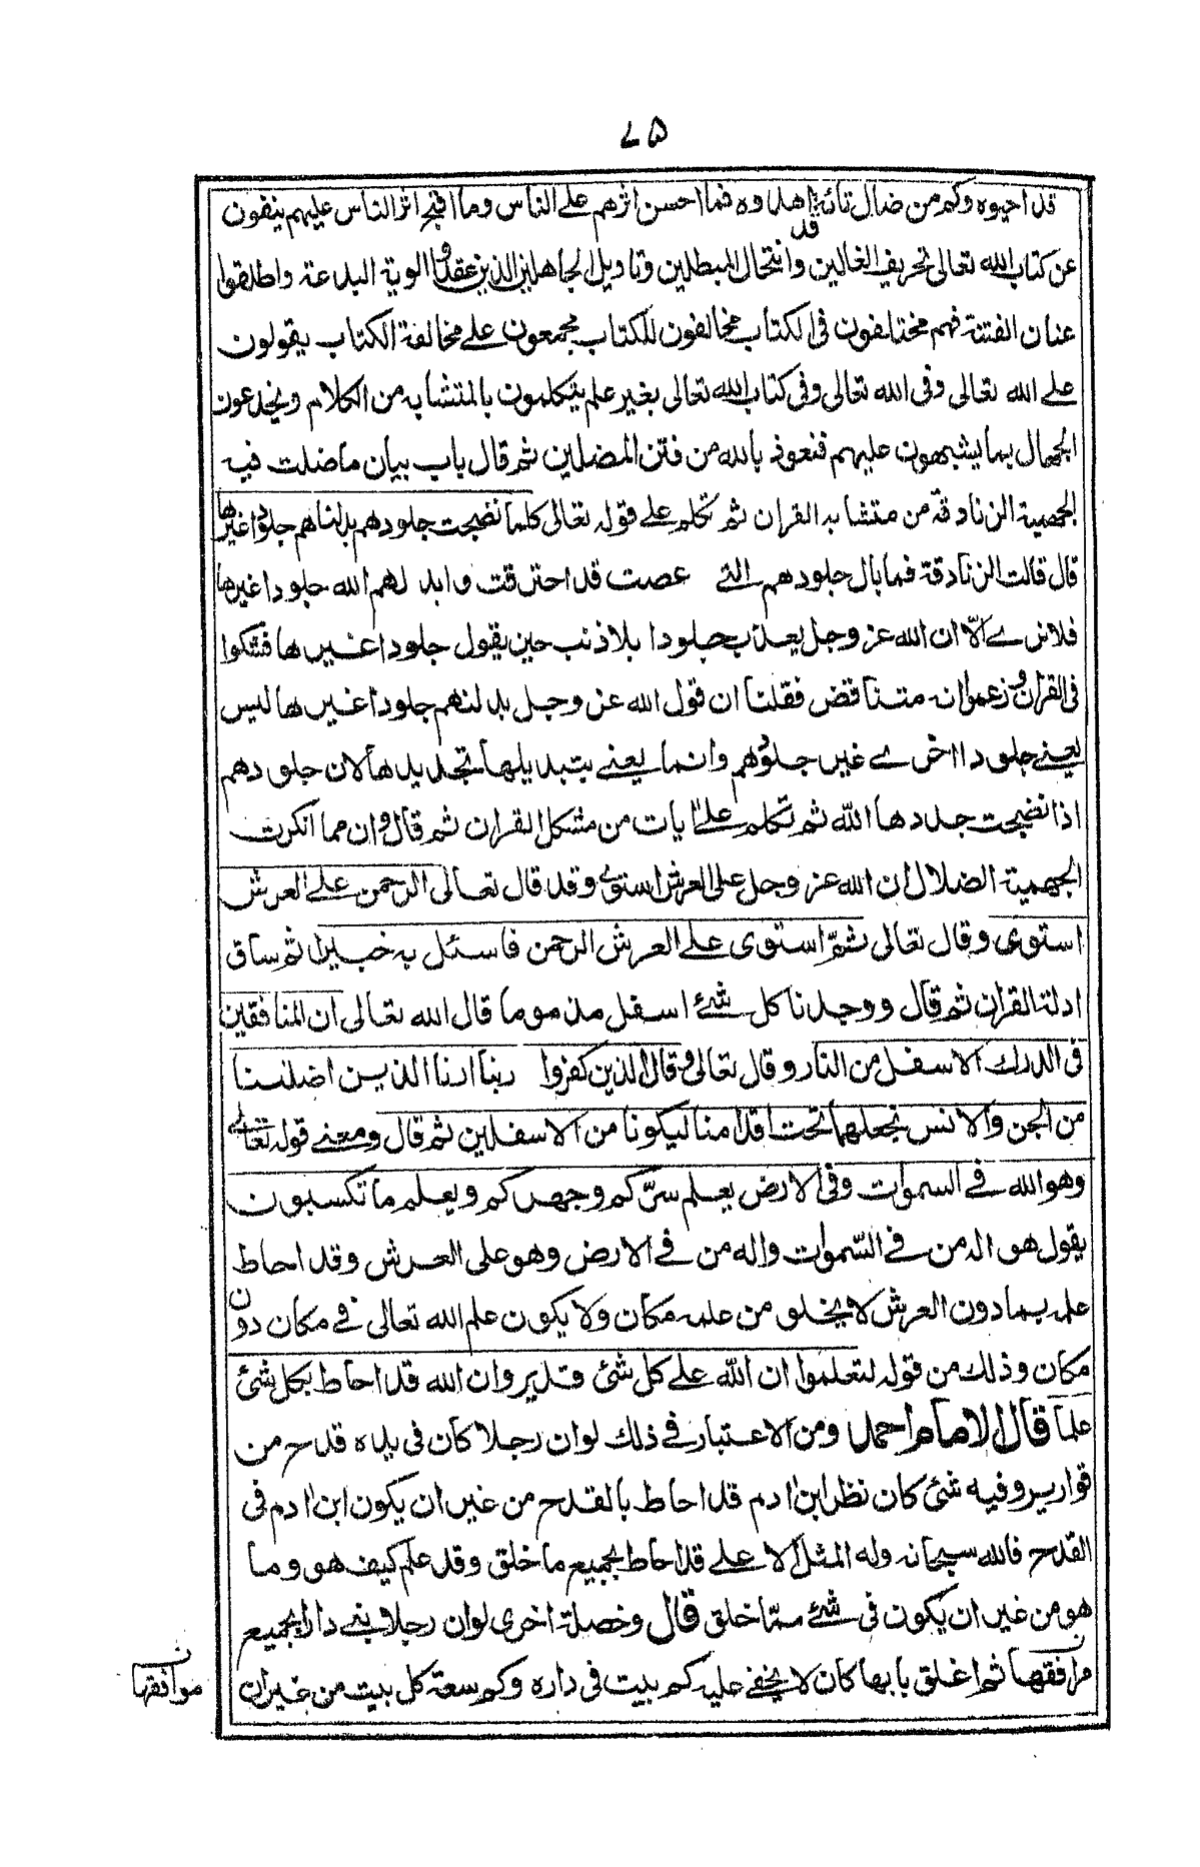 ٧٥
قد احيوه وكم من ضال تائه قد هدوه فما احسن اثرهم على الناس وما اقبح اثر الناس عليهم ينفون
عن كتاب الله تعالى تحريف الغالين وانتحال المبطلين وتاويل الجاهلين الذين عقدوا الوية البدعة واطلقوا
عنان الفتنة فهم مختلفون فى الكتاب مخالفون للكتاب مجمعون على مخالفة الكتاب يقولون
على الله تعالى وفى الله تعالى وفى كتاب الله تعالى بغير علم يتكلمون بالمتشابه من الكلام ويخدعون
الجهال بما يشبهون عليهم فنعوذ بالله من فتن المضلين ثم قال باب بيان ما ضلت فيه
الجهمية الزنادقة من متشابه القران ثم تكلم على قوله تعالى كلما نضجت جلودهم بدلناهم جلودا غيرها
قال قالت الزنادقة فما بال جلودهم التى عصت قد احترقت وابدلهم الله جلودا غيرها
فلا نرى الّا ان الله عز وجل يعذب جلودا بلا ذنب حين يقول جلودا غيرها فشكوا
فى القران وزعموا انه متناقض فقلنا ان قول الله عز وجل بدلنهم جلودا غيرها ليس
يعنى جلودا اخرى غير جلودهم وانما يعنى بتبديلها تجديدها لان جلودهم
اذا نضجت جددها الله ثم تكلم على ايات من مشكل القران ثم قال وان مما انكرت
الجهمية الضلال ان الله عز وجل على العرش استوى وقد قال تعالى الرحمن على العرش
استوى وقال تعالى ثمّ استوى على العرش الرحمن فاسئل به خبيرا ثم ساق
ادلة القران ثم قال ووجدنا كل شئ اسفل مذموما قال الله تعالى ان المنافقين
فى الدرك الاسفل من النار وقال تعالى وقال الذين كفروا ربنا ارنا الذين اضلنا
من الجن والانس نجعلهما تحت اقدامنا ليكونا من الاسفلين ثم قال ومعنى قوله تعالى
وهو الله فى السموات وفى الارض يعلم سرّكم وجهركم ويعلم ما تكسبون
يقول هو اله من فى السّموات واله من فى الارض وهو على العرش وقد احاط
علمه بما دون العرش لا يخلو من علمه مكان ولا يكون علم الله تعالى فى مكان دون
مكان وذلك من قوله لتعلموا ان الله على كل شئ قدير وان الله قد احاط بكل شئ
علما قال الامام احمد ومن الاعتبار فى ذلك لو ان رجلا كان فى يده قدح من
قوارير وفيه شئ كان نظر ابن ادم قد احاط بالقدح من غير ان يكون ابن ادم فى
القدح فالله سبحانه وله المثل الاعلى قد احاط بجميع ما خلق وقد علم كيف هو وما
هو من غير ان يكون فى شئ ممّا خلق قال وخصلة اخرى لو ان رجلا بنى دارا بجميع
مرافقها ثم اغلق بابها كان لا يخفى عليه كم بيت فى داره وكم سعة كل بيت من غير ان
ن
موافقها